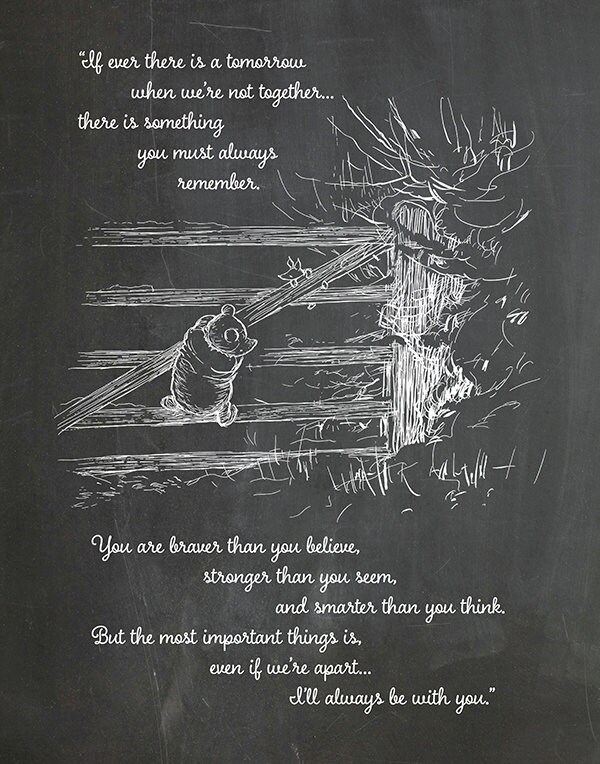 “If ever there is a tomorrow
when we're not together...
there is something
you must always
remember.
You are braver than you believe,
stronger than you seem,
and smarter than you think.
But the most important things is,
even if we're apart...
I'll always be with you.”